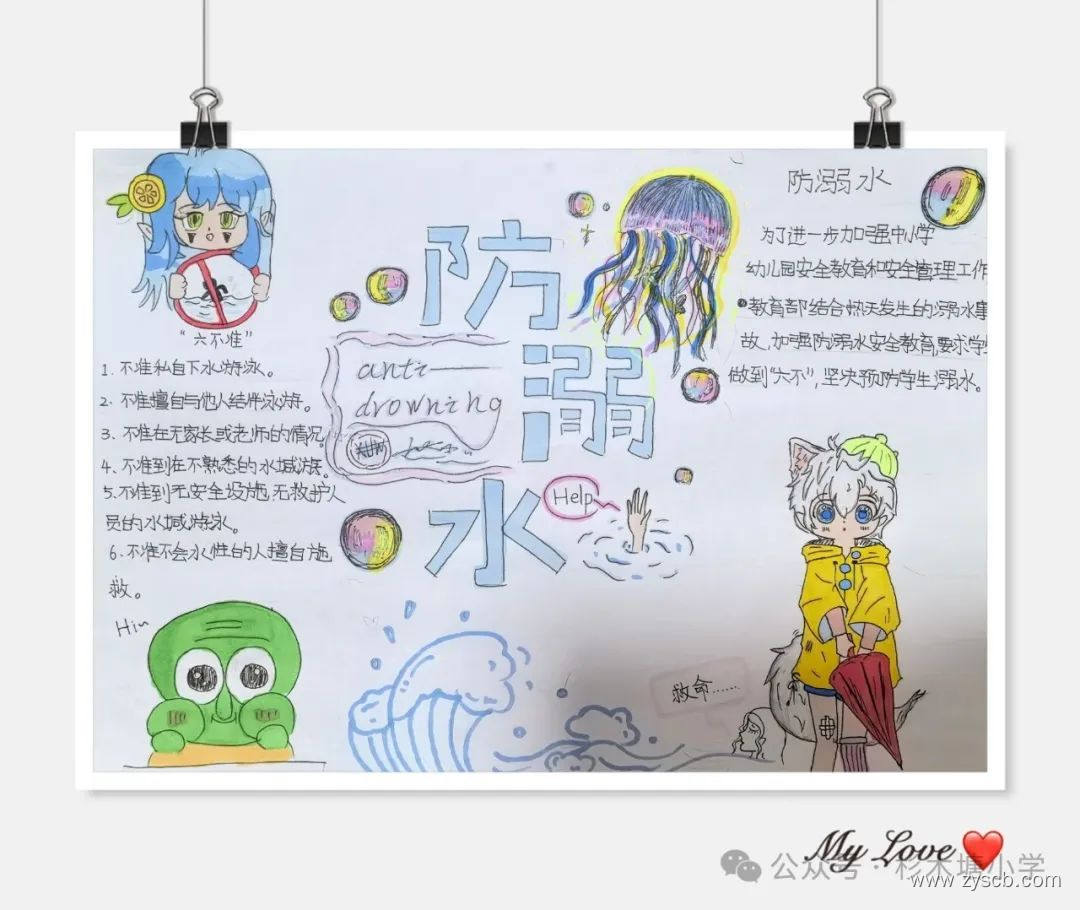 防溺水
anti—
drowning
Help
"六不准"
1.不准私自下水游泳。
2.不准擅自与他人结伴泳游。
3.不准在无家长或老师的情况。
4.不准到在不熟悉的水域游。
5.不准到无安全设施,无救护人
员的水域游泳。
6.不准不会水性的人擅自施
救。
Hiu
防溺水
为了进一步加强中小学
幼儿园安全教育和安全管理工作
教育部结合热天发生的溺水事
故,加强防溺水安全教育,要求学生
做到"六不",坚决预防学生溺水。
救命......
My Love
公众号·杉木塘小学
www.zyscb.com